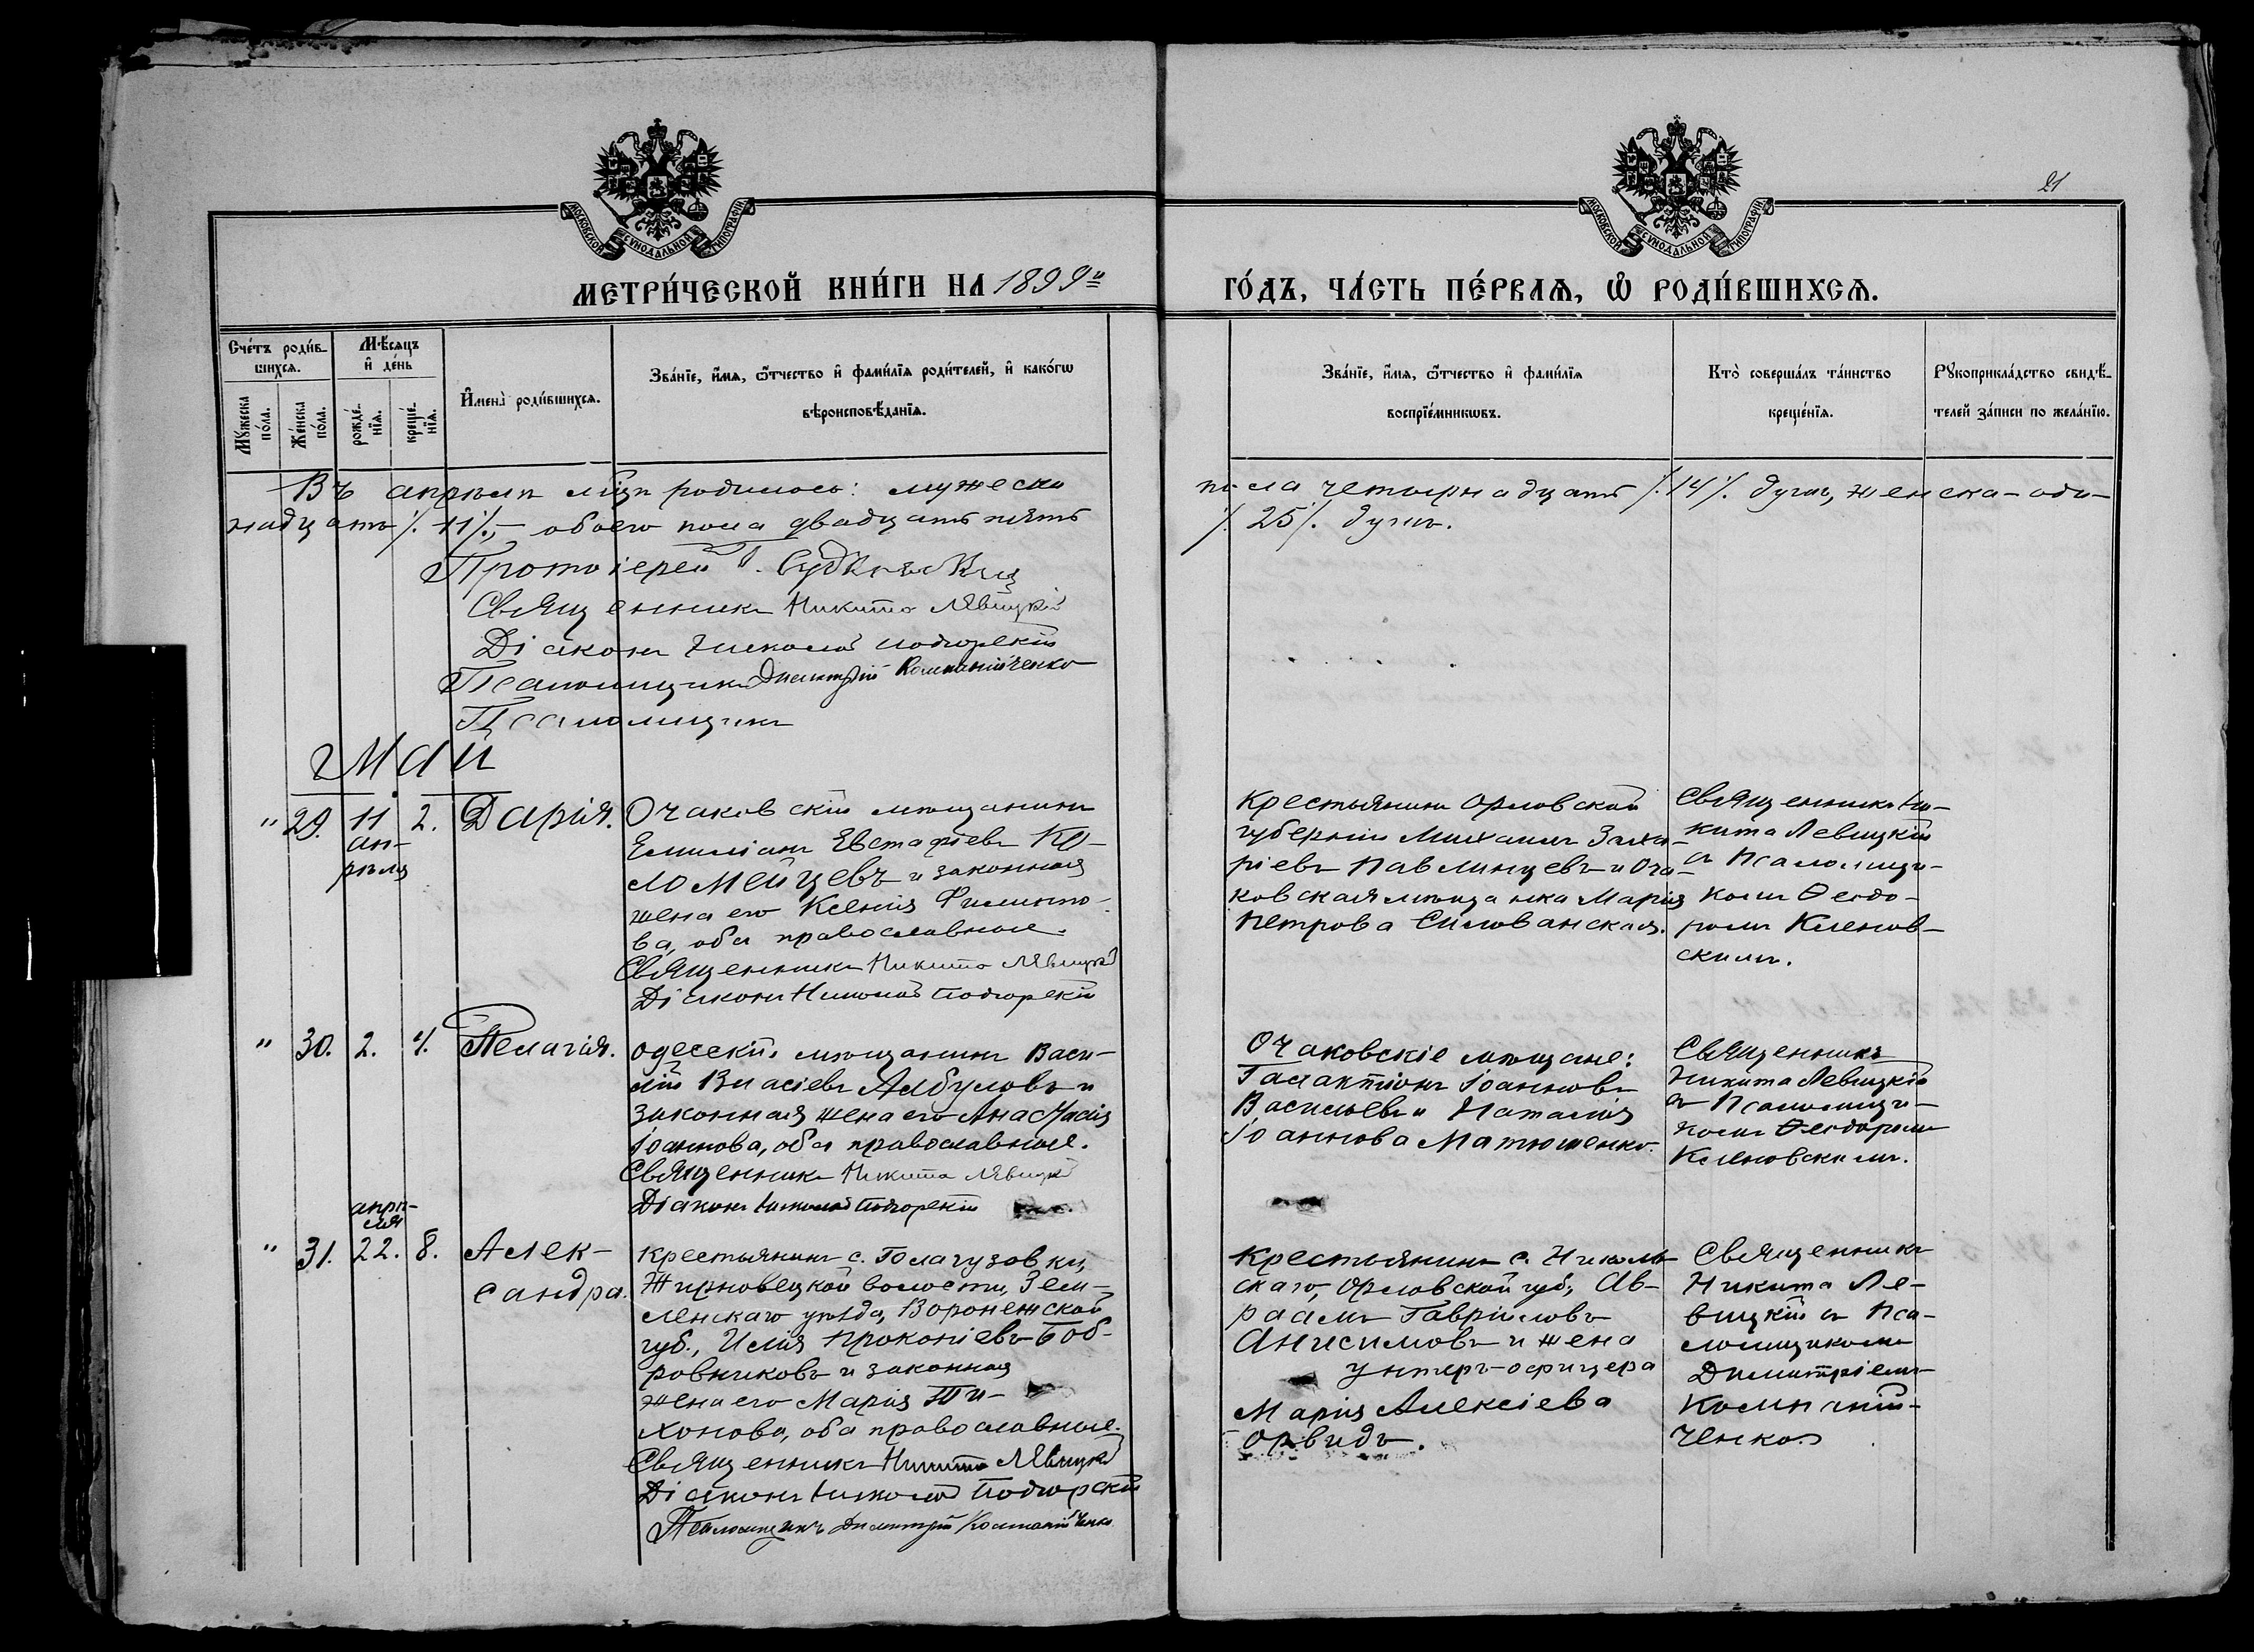 21
МОСКОВСКОЙ СѴНОДАЛЬНОЙ ТИПОГРАФІИ
МОСКОВСКОЙ СѴНОДАЛЬНОЙ ТИПОГРАФІИ
МЕТРИ́ЧЕСКОЙ КНИ́ГИ НА 1899й
ГО́ДЪ, ЧА́СТЬ ПЕ́РВАѦ, Ѽ РОДИ́ВШИХСѦ.
Сче́тъ роди́в-
шихся.
Мꙋ́жеска по́ла.
Же́нска по́ла.
Мѣ́сяцъ
и҆ де́нь
рожде́-
нїя.
креще́-
нїя.
И҆мена̀ роди́вшихся.
Зва́нїе, и҆́мя, ѻ҆́тчество и҆ фами́лїя роди́телей, и҆ како́гѡ
вѣроисповѣ́данїя.
Зва́нїе, и҆́мя, ѻ҆́тчество и҆ фами́лїя
воспрїе́мникѡвъ.
Кто̀ соверша́лъ та́инство
креще́нїя.
Рꙋкоприкла́дство свидѣ́-
телей за́писи по жела́нїю.
Въ апрѣлѣ мцѣ родилось: мужеска
пола четырнадцать /.14/. душъ, женска - оди-
надцать /.11/., - обоего пола двадцать пять
/.25/. душъ.
Протоіерей
Священникъ Никита Лѣвицкій
Діаконъ Николай Подгорскій
Псаломщикъ Димитрій Компанійченко
Псаломщикъ
Май
" 29. 11 ап-
рѣля 2. Дарія.
Очаковскій мѣщанинъ
Емиліанъ Евстафіевъ Ко-
ломейцевъ и законная
жена его Ксенія Филиппо-
ва, оба православные.
Священникъ Никита Лѣвицкій
Діаконъ Николай Подгорскій
Крестьянинъ Орловской
губерніи Михаилъ Заха-
ріевъ Павлинцевъ и Оча-
ковская мѣщанка Марія
Петрова Силованская.
Священникъ Ни-
кита Левицкій
съ Псаломщи-
комъ Ѳеодо-
ромъ Кленов-
скимъ.
" 30. 2. 4. Пелагія.
Одесскій мѣщанинъ Васи-
лій Власіевъ Албуловъ и
законная жена его Анастасія
Іоаннова, оба православные.
Священникъ Никита Лѣвицкій
Діаконъ Николай Подгорскій
Очаковскіе мѣщане:
Галактіонъ Іоанновъ
Васильевъ и Наталія
Іоаннова Матюшенко.
Священникъ
Никита Левицкій
съ Псаломщи-
комъ Ѳеодоромъ
Кленовскимъ.
" 31. апрѣ-
ля
22. 8. Алек-
сандра.
Крестьянинъ с. Голагузовки,
Жирновецкой волости, Зем-
ленскаго уѣзда, Воронежской
губ., Илія Прокопіевъ Боб-
ровниковъ и законная
жена его Марія Ти-
хонова, оба православные.
Священникъ Никита Лѣвицкій
Діаконъ Николай Подгорскій
Псаломщикъ Димитрій Компанійченко
Крестьянинъ с. Николь-
скаго, Орловской губ., Ав-
раамъ Гавриловъ
Анисимовъ и жена
унтеръ-офицера
Марія Алексіева
Орвидъ.
Священникъ
Никита Ле-
вицкій съ Пса-
ломщикомъ
Димитріемъ
Компаній-
ченко.